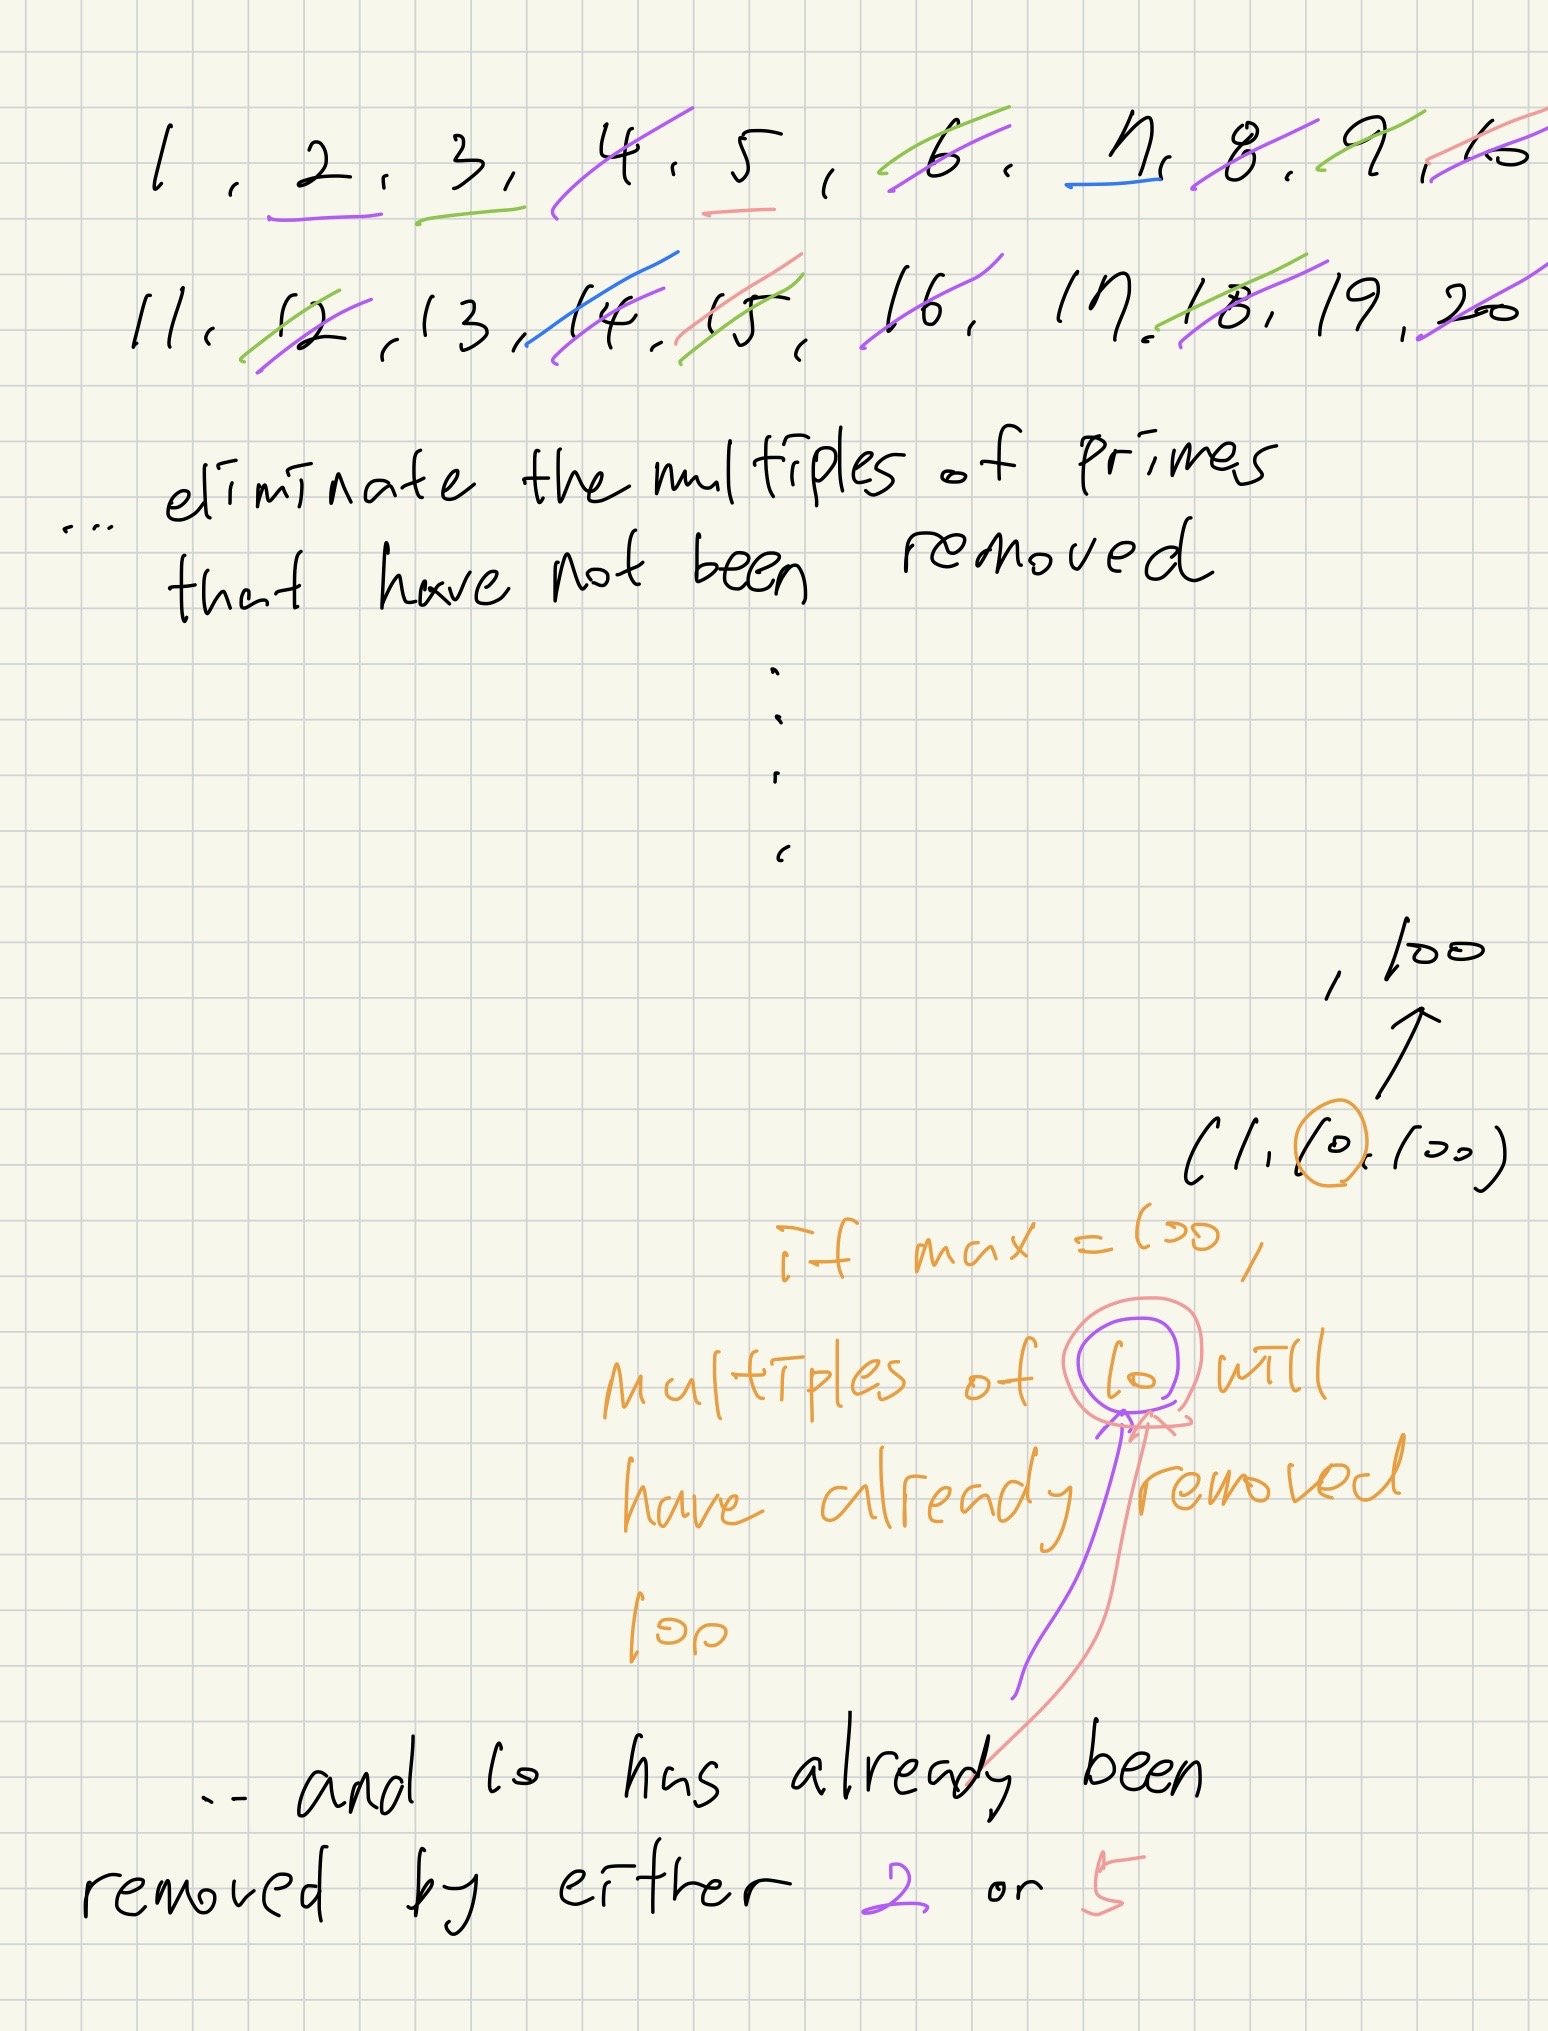 1, 2, 3, 4, 5, 6, 7, 8, 9, 10
11, 12, 13, 14, 15, 16, 17, 18, 19, 20
... eliminate the multiples of primes
that have not been removed
, 100
(1, 10, 100)
if max = 100,
multiples of 10 will
have already removed
100
... and 10 has already been
removed by either 2 or 5